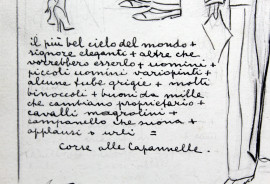 il più bel cielo del mondo +
signore eleganti + altre che
vorrebbero esserlo + uomini +
piccoli uomini variopinti +
alcune tube grigie + molti
binoccoli + buoni da mille
che cambiano proprietario +
cavalli magrolini +
campanello che suona +
applausi o urli =
corse alle Capannelle.